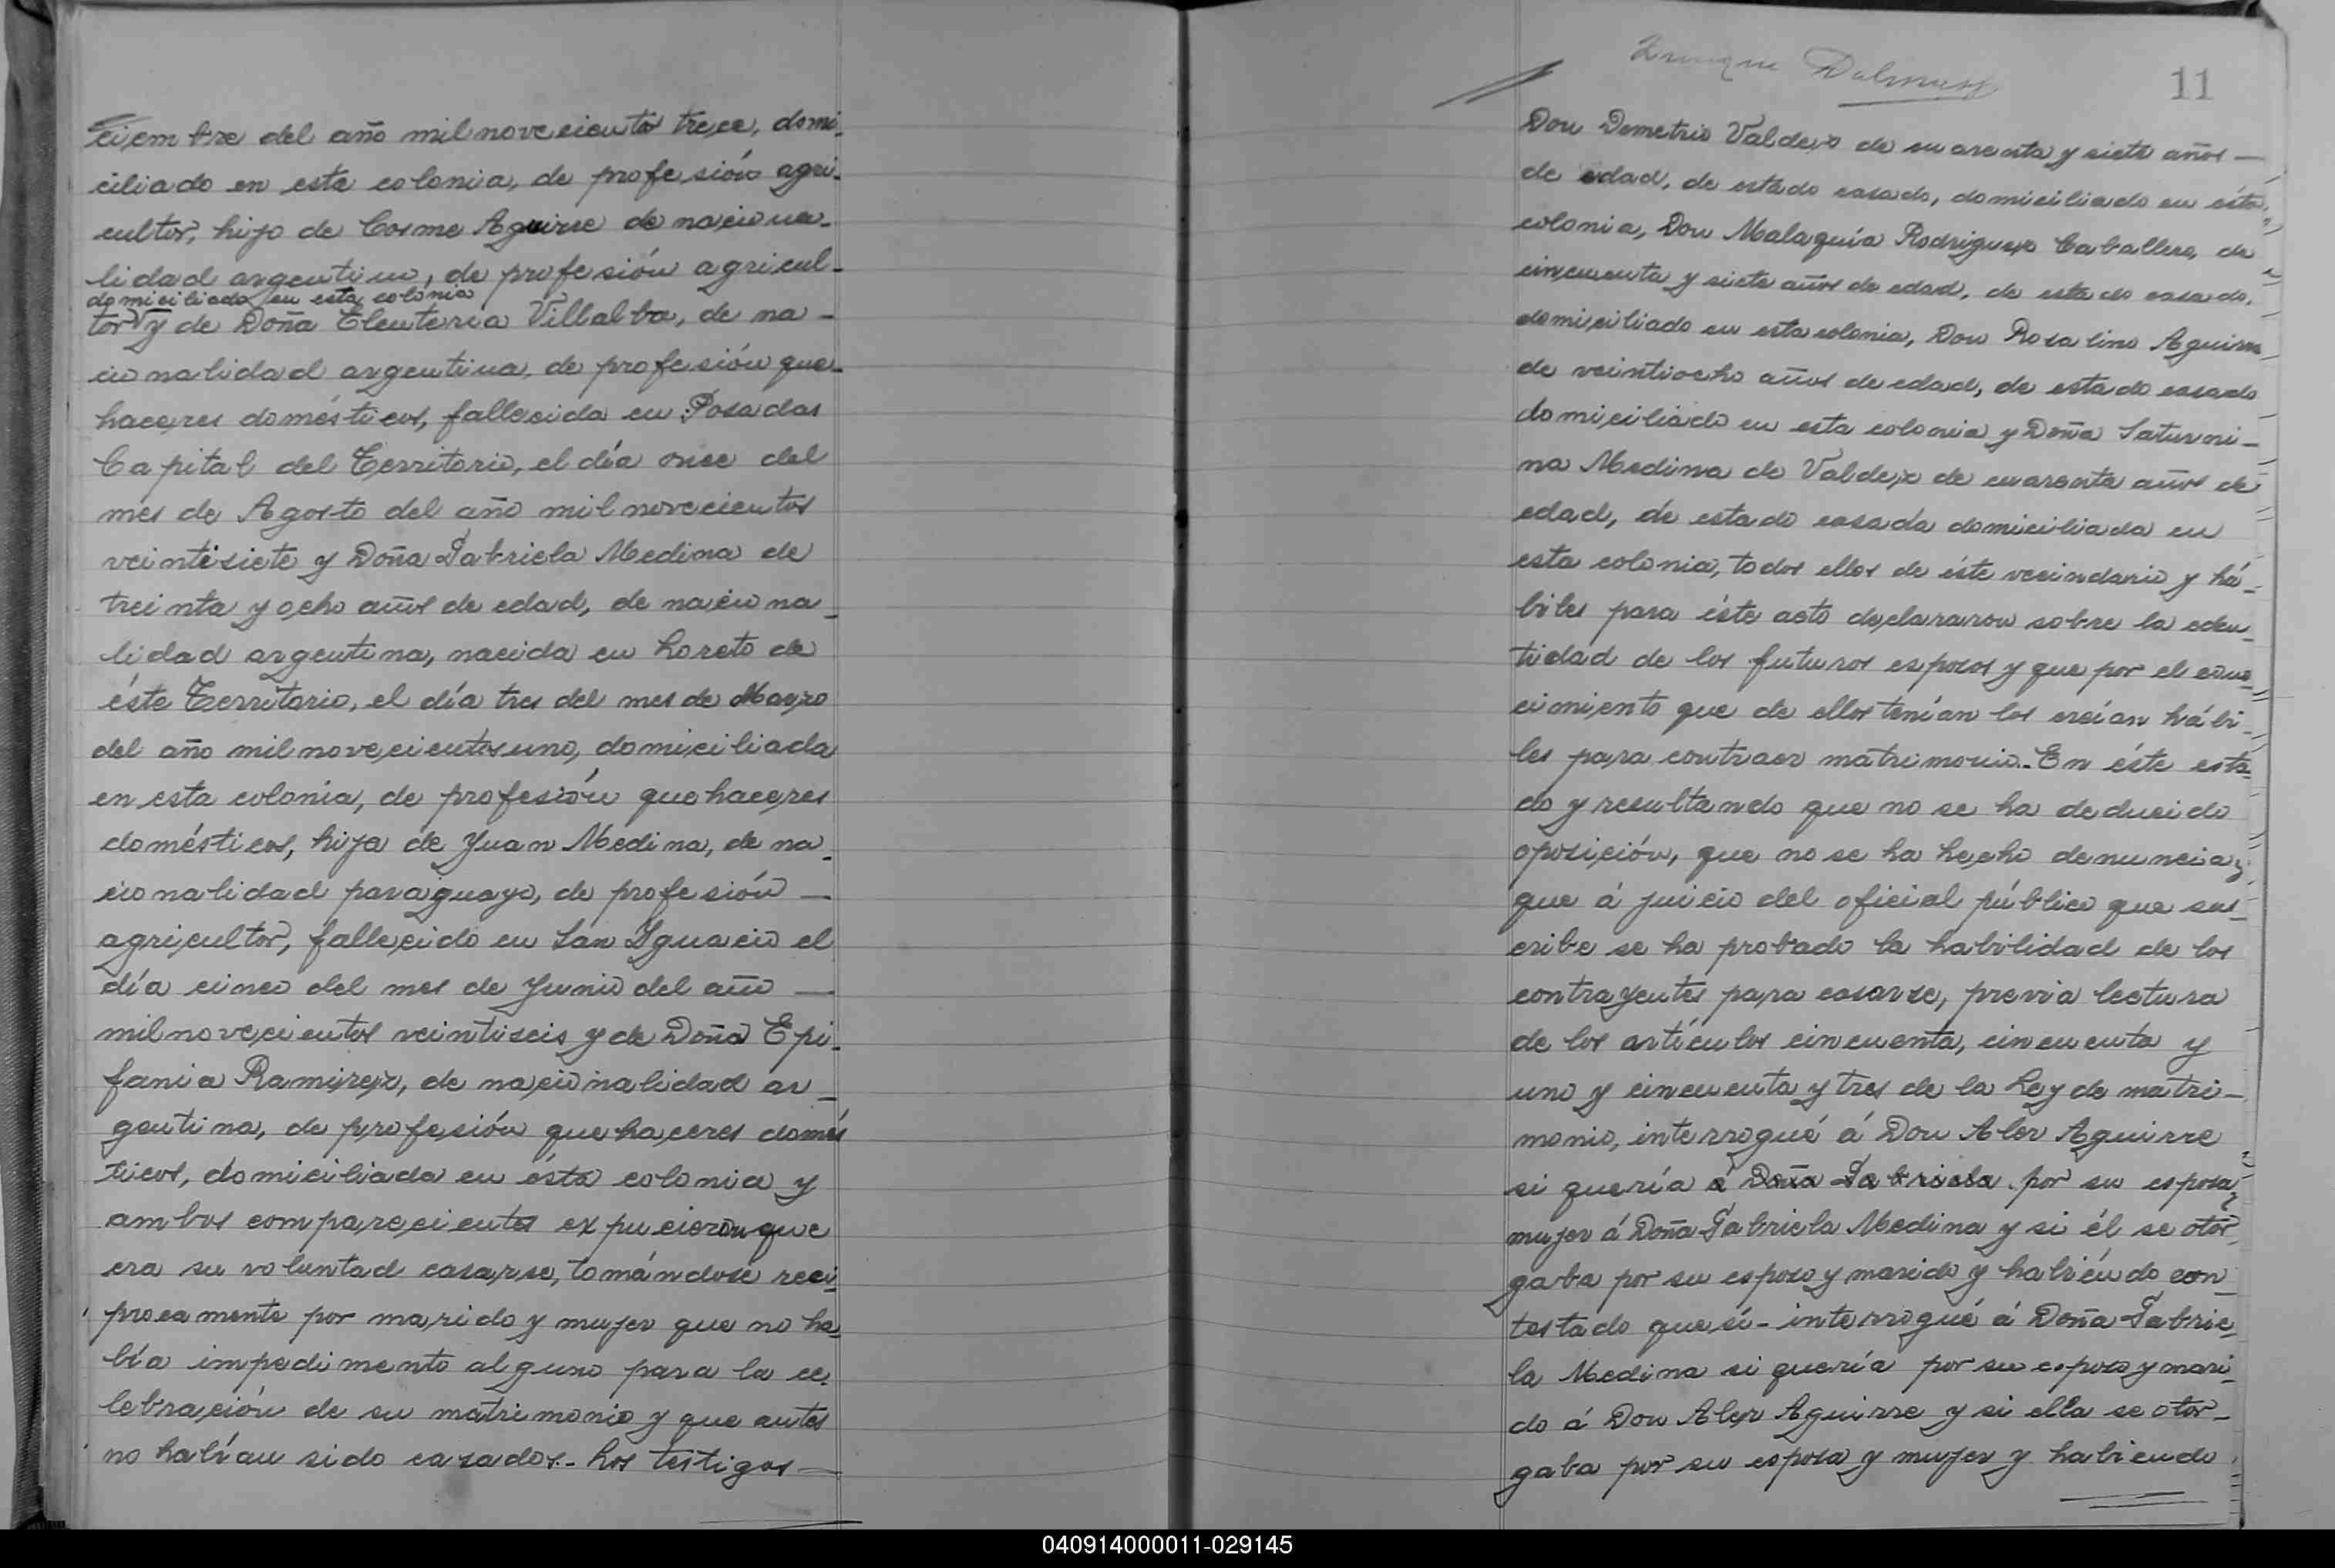 ciembre del año mil novecientos trece, domi-
ciliado en esta colonia, de profesión agri-
cultor, hijo de Cosme Aguirre de naciona-
lidad argentino, de profesión agricul-
domiciliado en esta colonia
tor y de Doña Eleuteria Villalba, de na-
cionalidad argentina, de profesión que-
haceres domésticos, fallecida en Posadas
Capital del Territorio, el día once del
mes de Agosto del año mil novecientos
veintisiete y Doña Gabriela Medina de
treinta y ocho años de edad, de naciona-
lidad argentina, nacida en Loreto de
éste Territorio, el día tres del mes de Marzo
del año mil novecientos uno, domiciliada
en esta colonia, de profesión quehaceres
domésticos, hija de Juan Medina, de na-
cionalidad paraguayo, de profesión —
agricultor, fallecido en San Ignacio el
día cinco del mes de Junio del año —
mil novecientos veintiseis y de Doña Epi-
fania Ramirez, de nacionalidad ar-
gentina, de profesión quehaceres domés
ticos, domiciliada en ésta colonia y
ambos comparecientes expucieron que
era su voluntad casarse, tomándose reci-
procamente por marido y mujer que no ha-
bía impedimento alguno para la ce-
lebración de su matrimonio y que antes
no habían sido casados.- Los testigos —
Enrique Dalmuss
11
Don Demetrio Valdez de cuarenta y siete años —
de edad, de estado casado, domiciliado en ésta
colonia, Don Malaquía Rodriguez Caballero, de
cincuenta y siete años de edad, de estado casado,
domiciliado en esta colonia, Don Rosalino Aguirre
de veintiocho años de edad, de estado casado
domiciliado en esta colonia y Doña Saturni-
na Medina de Valdez de cuarenta años de
edad, de estado casada domiciliada en
esta colonia, todos ellos de éste vecindario y há-
biles para éste acto declararon sobre la eden-
tidad de los futuros esposos y que por el cono-
cimiento que de ellos tenían los creían hábi-
les para contraer matrimonio.- En éste esta-
do y resultando que no se ha deducido
oposición, que no se ha hecho denuncia y
que á juicio del oficial público que sus-
cribe se ha probado la habilidad de los
contrayentes para casarse, previa lectura
de los artículos cincuenta, cincuenta y
uno y cincuenta y tres de la Ley de matri-
monio, interrogué á Don Aler Aguirre
si quería á Doña Gabriela por su esposa y
mujer á Doña Gabriela Medina y si él se otor-
gaba por su esposo y marido y habiéndo con-
testado que sí- interrogué á Doña Gabrie-
la Medina si quería por su esposo y mari-
do á Don Aler Aguirre y si ella se otor-
gaba por su esposa y mujer y habiendo
040914000011-029145